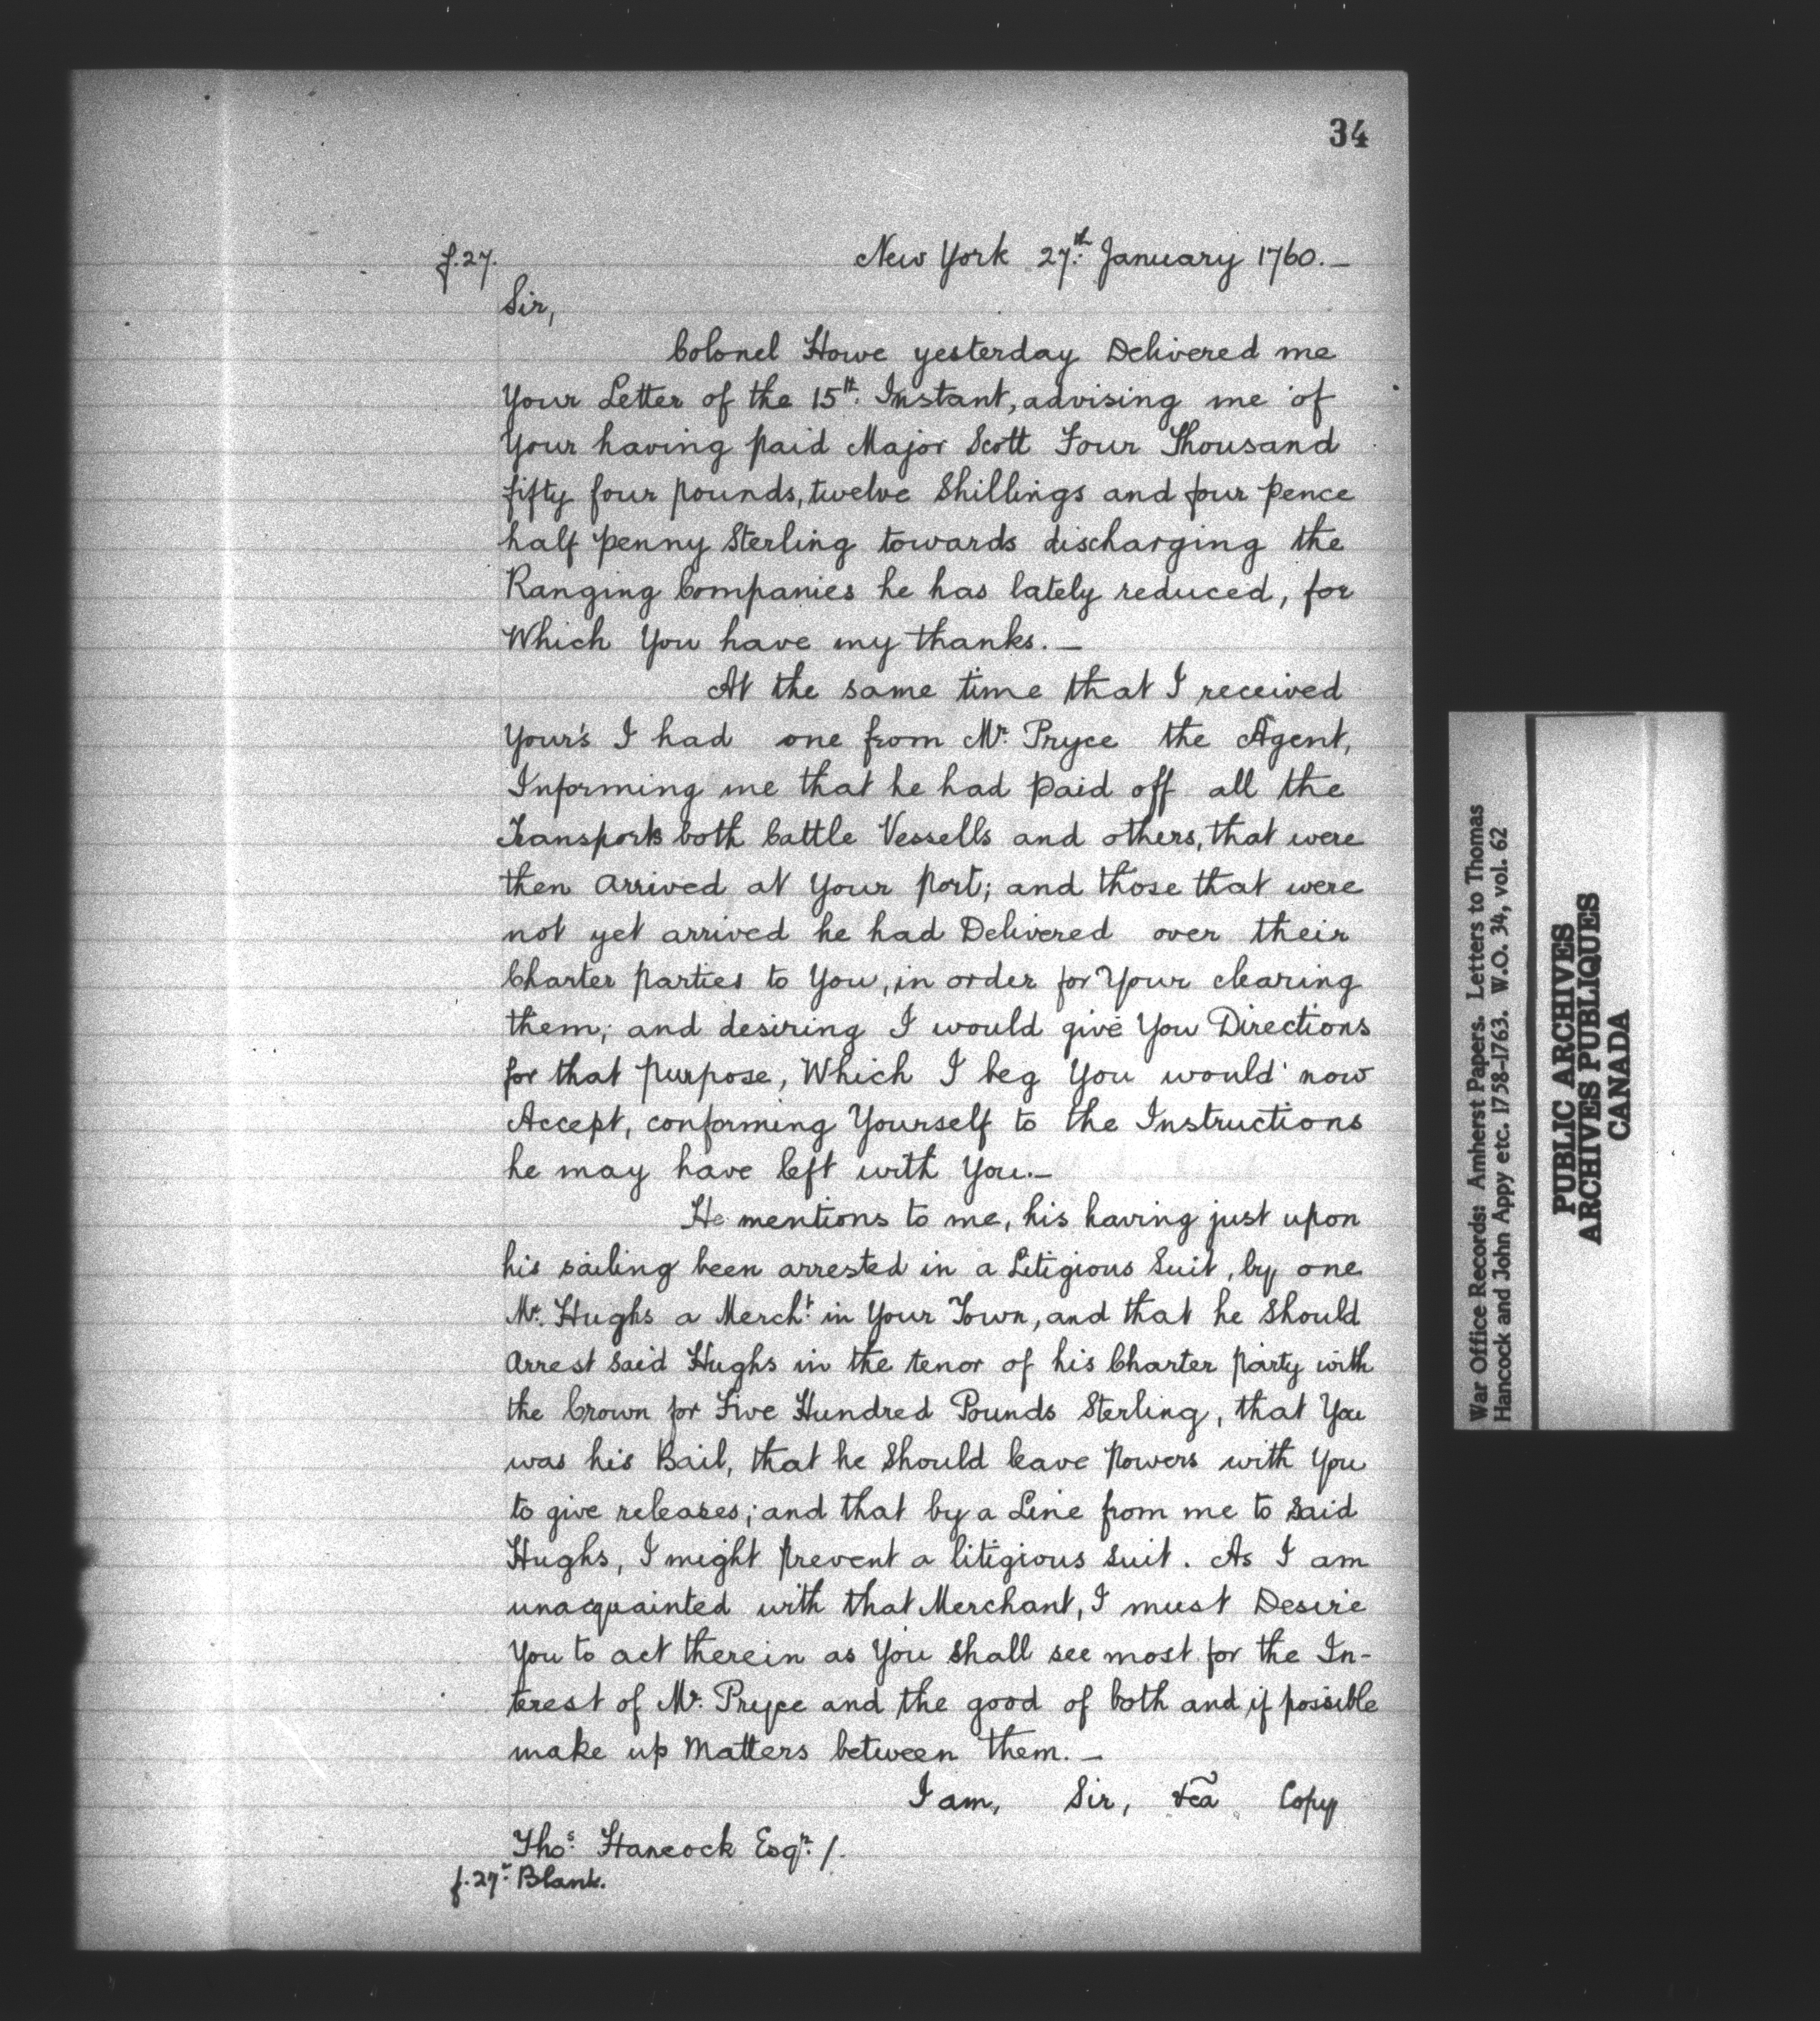 34
f.27. New York 27th. January 1760._
Sir,
Colonel Howe yesterday Delivered me
Your Letter of the 15th. Instant, advising me of
Your having paid Major Scott Four Thousand
fifty four pounds, twelve Shillings and four pence
half penny Sterling towards discharging the
Ranging Companies he has lately reduced, for
Which You have my thanks._
At the same time that I received
Your's I had one from Mr. Pryce the Agent,
Informing me that he had paid off all the
Transports both Cattle Vessells and others, that were
then arrived at Your port; and those that were
not yet arrived he had Delivered over their
Charter parties to You, in order for Your clearing
them; and desiring I would give You Directions
for that purpose, Which I beg You would now
Accept, conforming Yourself to the Instructions
he may have left with You._
He mentions to me, his having just upon
his sailing been arrested in a Litigious Suit, by one
Mr. Hughs a Mercht. in Your Town, and that he Should
Arrest said Hughs in the tenor of his Charter party with
the Crown for Five Hundred Pounds Sterling, that You
was his Bail, that he Should leave powers with You
to give releases; and that by a Line from me to said
Hughs, I might prevent a litigious suit. As I am
unacquainted with that Merchant, I must Desire
You to act therein as You shall see most for the In-
terest of Mr. Pryce and the good of both and if possible
make up Matters between them._
I am, Sir, &ca Copy
Thos. Hancock Esqr. /.
f.27v. Blank.
War Office Records: Amherst Papers. Letters to Thomas
Hancock and John Appy etc. 1758-1763. W.O. 34, vol. 62
PUBLIC ARCHIVES
ARCHIVES PUBLIQUES
CANADA